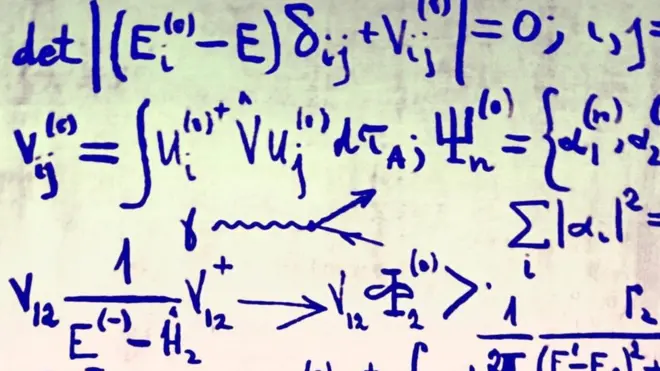 det |(E_i^(0) - E) δ_ij + V_ij^(0)| = 0; i, j =
V_ij^(0) = ∫ u_i^(0)+ V̂ u_j^(0) dτ_A; Ψ_n^(0) = { α_1^(n), α_2
γ
∑_i |α_i|^2 =
V_12 1/(E^(-) - Ĥ_2) V_12^+ → V_12 Φ_2^(0) >
1/2π Γ_2/(E' - E_0)^2 +